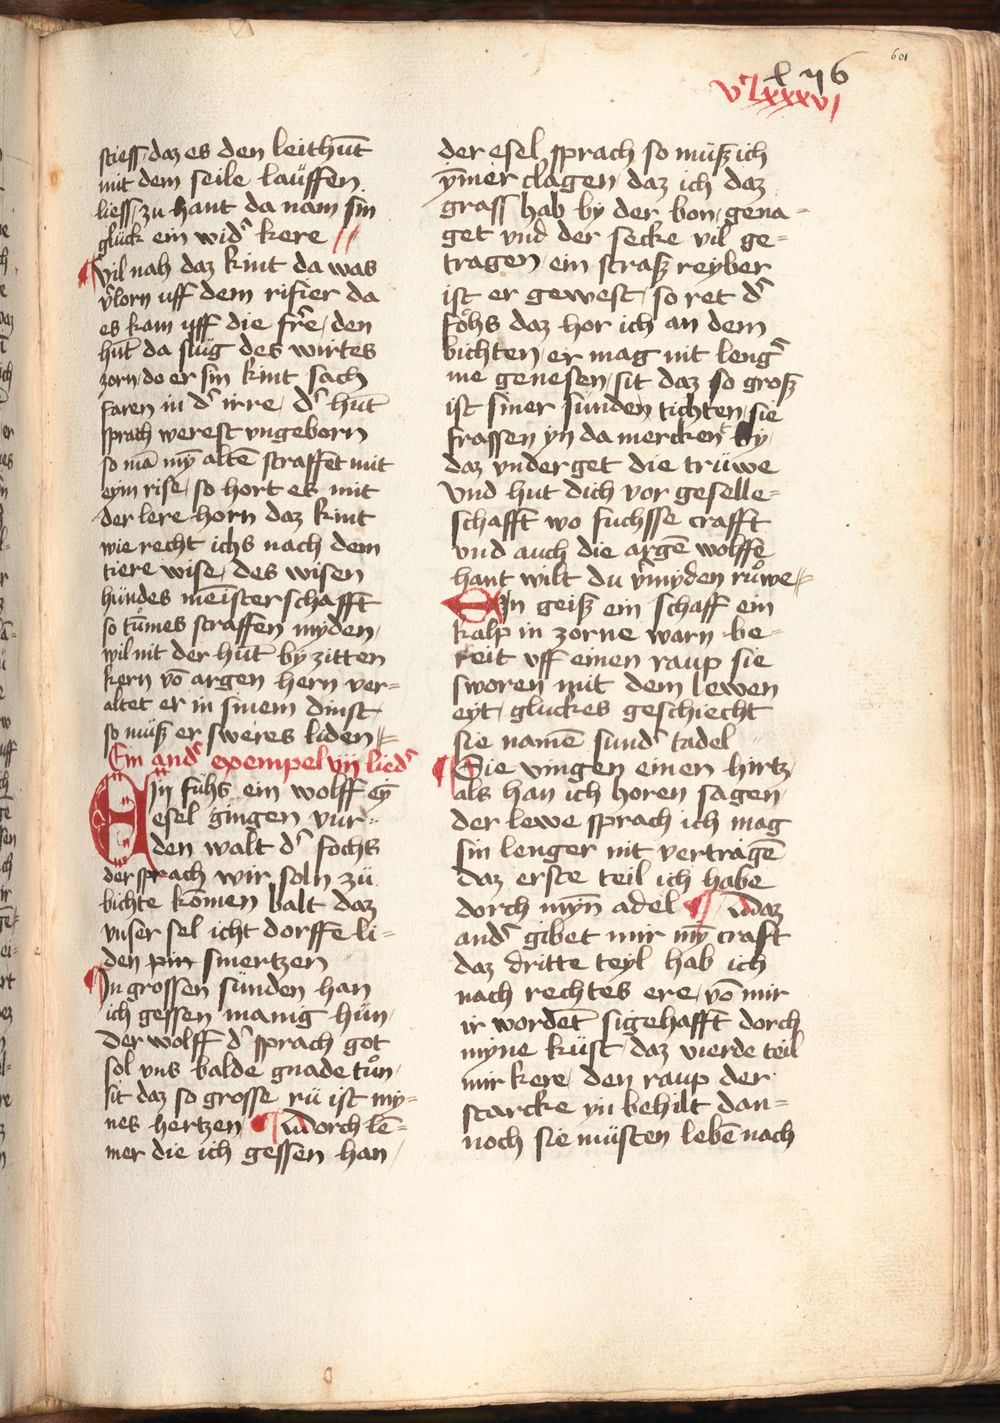 601
l ij 6
VᶜLxxxvı
stieß daz es den leithūt
mit dem seile lauffen
liess zu hant da nam sin
gluck ein wid' kere
Vil nah daz kint da was
v'lorn uff dem rifier da
es kam uff die fr'e den
hūt da slug des wirtes
zorn do er sin kint sach
faren in d' irre d' hūt
sprach werest vngeborn
so mā mȳ altē straffet mit
eym rise so hort es mit
der lere horn daz kint
wie recht ichs nach dem
tiere wise des wisen
hundes meisterschafft
so tumes straffen myden
wil nit der hūt by zitten
kern vō argen hern ver=
altet er in sinem dinst
so muß er sweres liden
Ein and' exempel vij lied'
Ein fuhs ein wolff eȳ
esel gingen vur=
den walt d' fochs
der sprach wir soln zu
bichte komen balt daz
vnser sel icht dorffe li=
den pin smertzen
In grossen sunden han
ich gessen manig hun
der wolff d' sprach got
sol vns balde gnade tuon
sit daz so grosse ru ist my=
nes hertzen dorch lē=
mer die ich gessen han
der esel sprach so muß ich
ȳmer clagen daz ich daz
grass hab by der bon gena=
get vnd der secke vil ge=
tragen ein straß reyber
ist er gewest so ret d'
fohs daz hor ich an dem
bichten er mag nit leng'
me genesen sit daz so groß
ist siner sunden tichten sie
frassen yn da mercken by
daz vnderget die truwe
Vnd hut dich vor geselle=
schafft wo fuchsse crafft
vnd auch die argē wolffe
hant wilt du v'myden ruowe
Ein geiß ein schaff ein
kalp in zorne warn be=
reit vff einen raup sie
sworen mit dem lewen
eyt gluckes geschiecht
sie namē sund' tadel
Sie vingen einen hirtz
als han ich horen sagen
der lewe sprach ich mag
sin lenger nit vertragē
daz erste teil ich habe
dorch myn adel daz
and' gibet mir mȳ craft
daz dritte teyl hab ich
nach rechtes ere vō mir
ir wordēt sigehafft dorch
myne kust daz vierde teil
mir kere den raup der
starcke yn behilt dan=
noch sie musten lebē nach